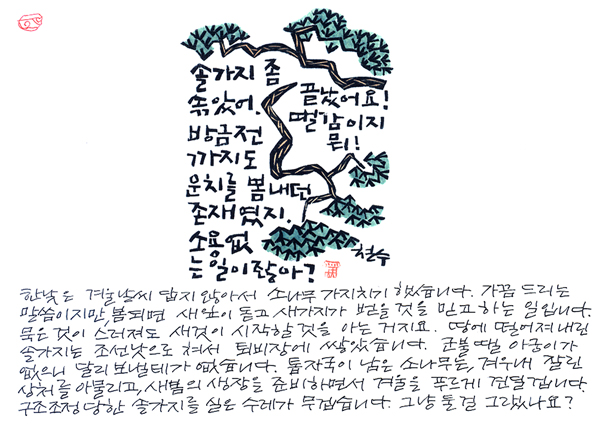 솔가지 좀
솎았어.
방금전
까지도
운치를 뽐내던
존재였지.
소용없
는일이잖아?
끝났어요!
땔감이지
뭐!
철수
한낮은 겨울날씨 답지 않아서 소나무 가지치기 했습니다. 가끔 드리는
말씀이지만 봄되면 새잎이 돋고 새가지가 벋을 것을 믿고 하는 일입니다.
묵은 것이 스러져도 새것이 시작할 것을 아는 거지요. 땅에 떨어져내린
솔가지는 조선낫으로 쳐서 퇴비장에 쌓았습니다. 군불 땔 아궁이가
없으니 달리 보낼데가 없습니다. 톱자국이 남은 소나무는, 겨우내 잘린
상처를 아물리고, 새봄의 생장을 준비하면서 겨울을 푸르게 견딜겁니다.
구조조정 당한 솔가지를 실은 수레가 무겁습니다. 그냥 둘걸 그랬나요?